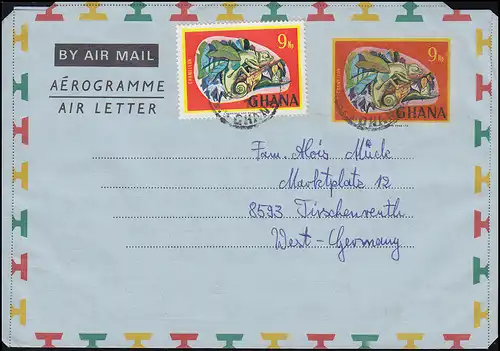 BY AIR MAIL
AÉROGRAMME
AIR LETTER
9 NP
CHAMELEON
GHANA
9 NP
CHAMELEON
GHANA
Fam. Alois Mück
Marktplatz 12
8593 Tirschenreuth
West-Germany